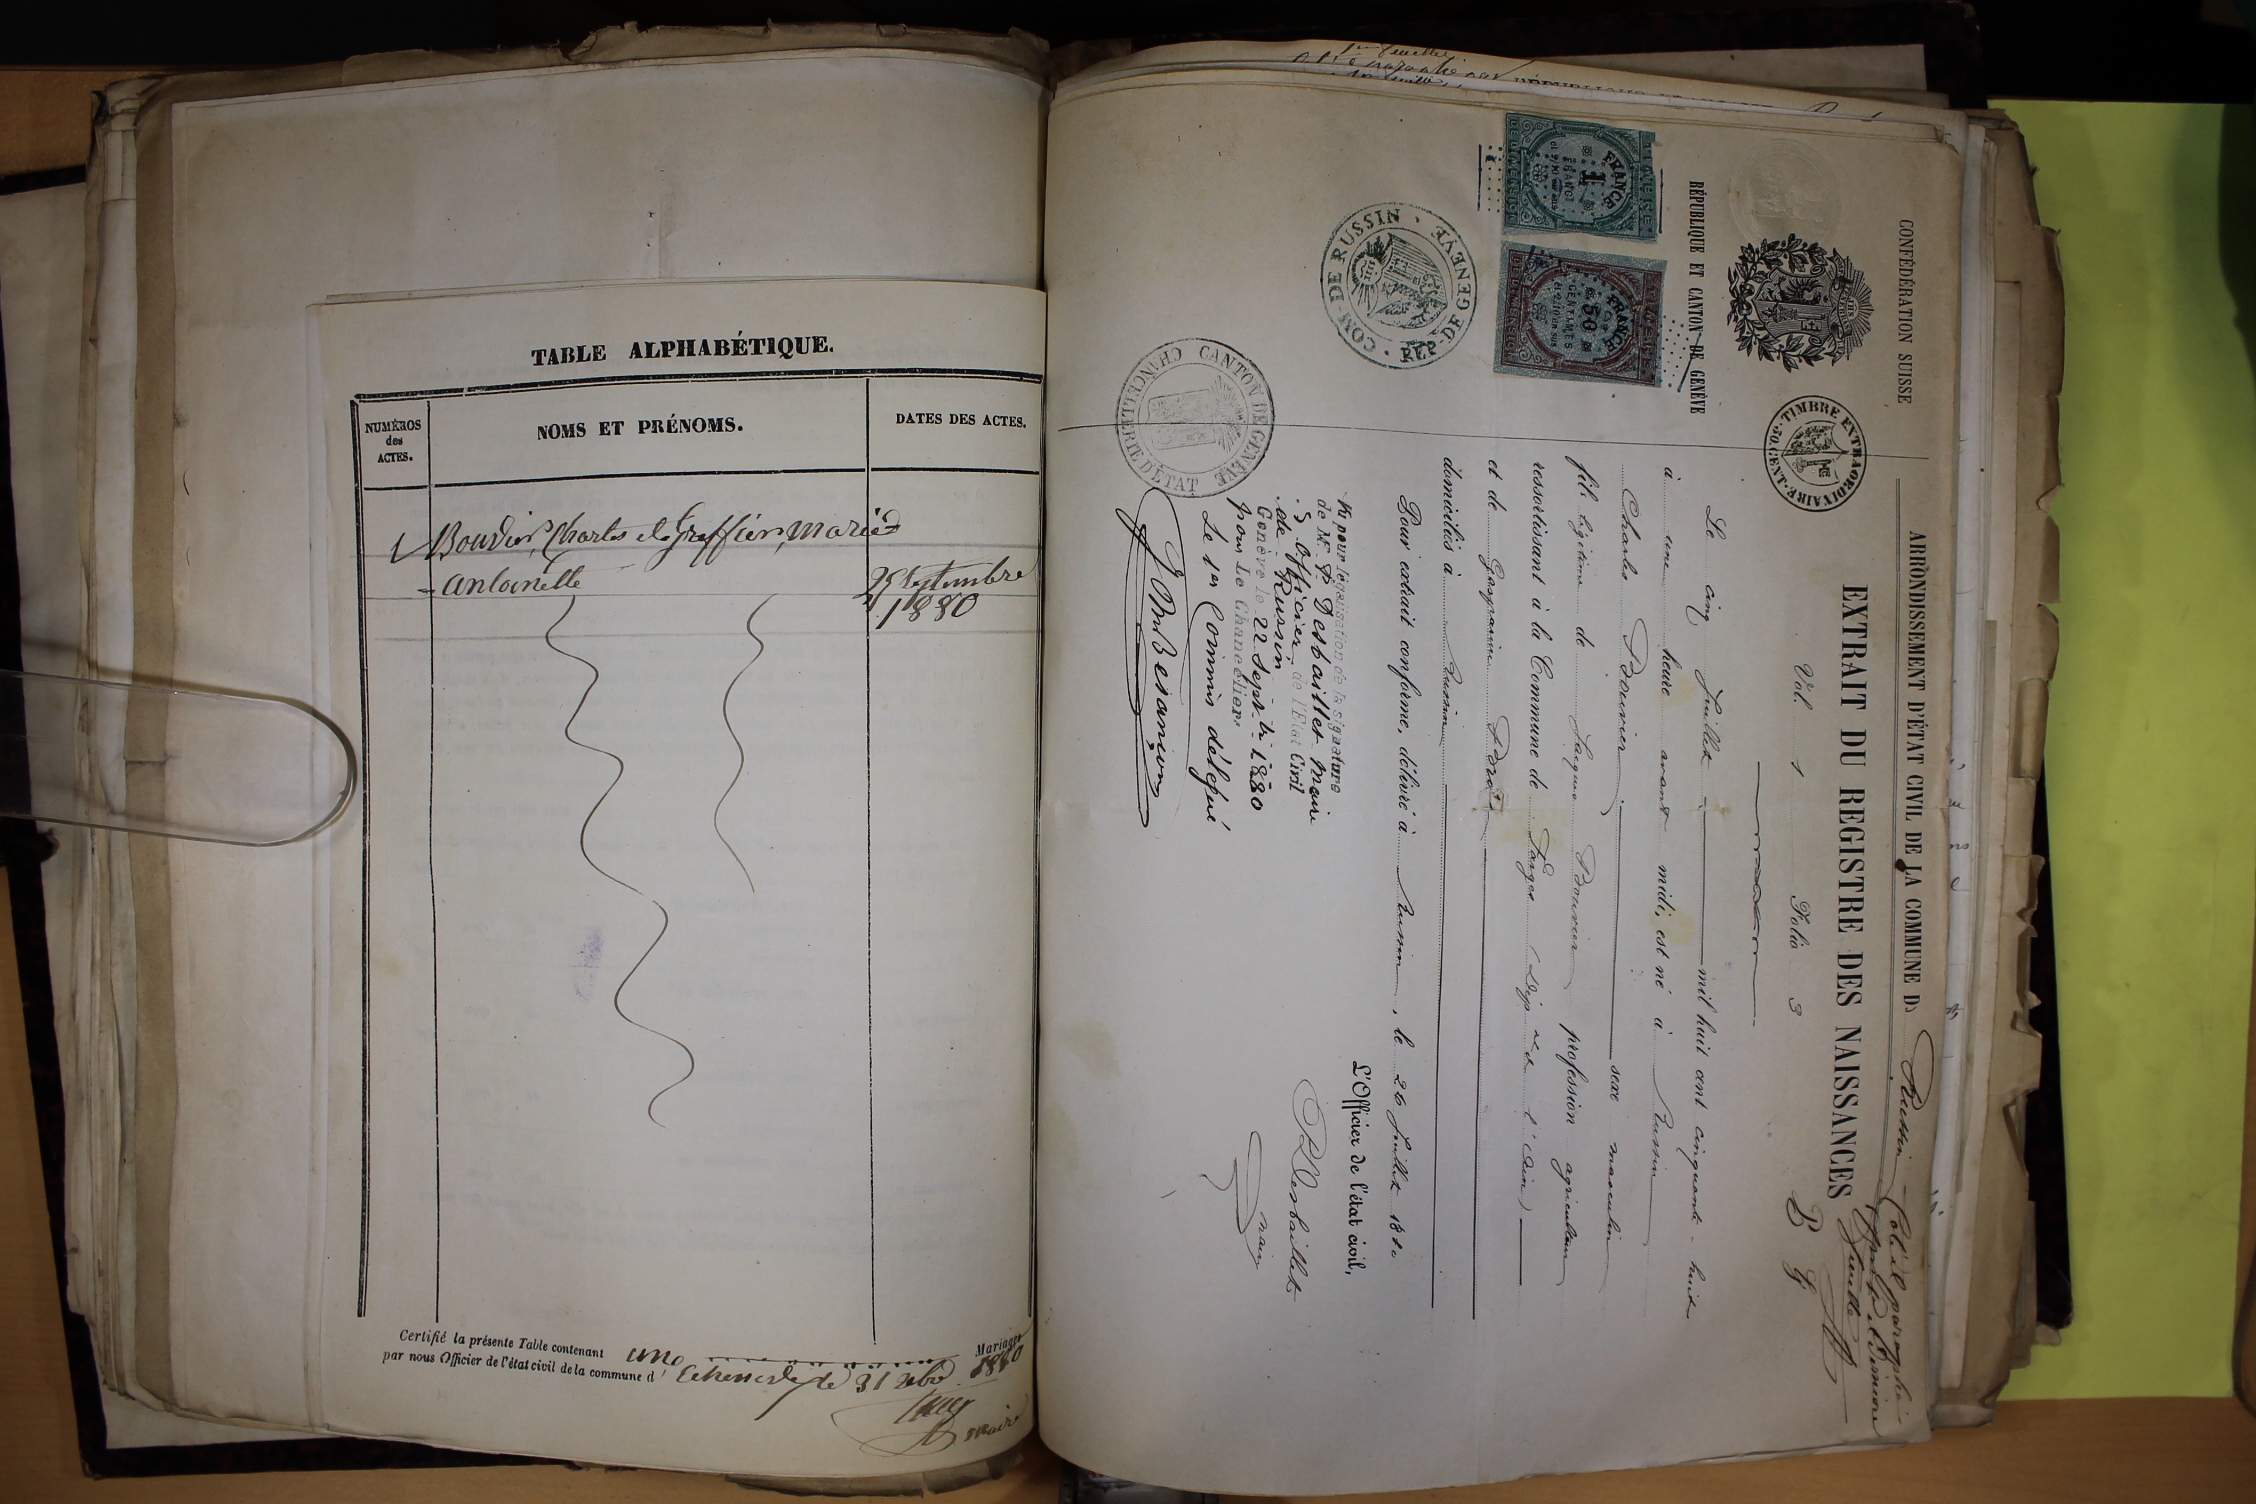 TABLE ALPHABÉTIQUE.
NUMÉROS
des
ACTES.
NOMS ET PRÉNOMS.
DATES DES ACTES.
1 Bouvier, Charles et Greffier, Marie
- Antoinette
25 Septembre
1880
Certifié la présente Table contenant une Mariages
par nous Officier de l'état civil de la commune d' le 31 Xbre 1880
maire
CONFÉDERATION SUISSE
RÉPUBLIQUE ET CANTON DE GENÈVE
TIMBRE EXTRAORDINAIRE
30 CENT.
FRANCE
1
FRANC
FRANCE
50
CENTIMES
COM. DE RUSSIN
REP. DE GENÈVE
CANTON DE GENÈVE
CHANCELLERIE D'ÉTAT
ARRONDISSEMENT D'ÉTAT CIVIL DE LA COMMUNE DE Russin
Coté et paraphé
feuille
EXTRAIT DU REGISTRE DES NAISSANCES
Vol. 1 Folio 3
Le cinq Juillet mil huit cent cinquante-huit
à une heure avant midi, est né à Russin
Charles Bouvier sexe masculin
fils légitime de Jaques Bouvier profession agriculteur
ressortissant à la Commune de Farges (Dép. de l'Ain)
et de
domiciliés à Russin
Pour extrait conforme, délivré à Russin, le 26 Juillet 1880
L'Officier de l'état civil,
P Desbaillet
maire
Vu pour légalisation de la signature
de M. P. Desbaillet Maire
Officier de l'Etat Civil
de Russin
Genève le 22 Sept. 1880
pour Le Chancelier
Le 1er Commis délégué
J Mc Besançon